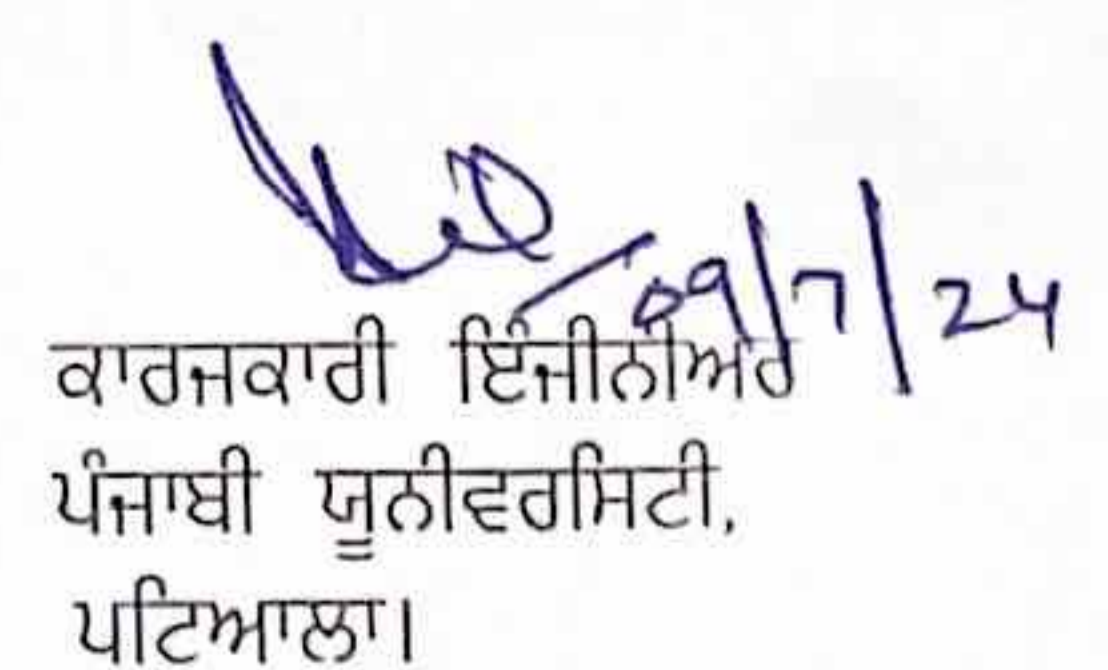 09/7/24
ਕਾਰਜਕਾਰੀ ਇੰਜੀਨੀਅਰ
ਪੰਜਾਬੀ ਯੂਨੀਵਰਸਿਟੀ,
ਪਟਿਆਲਾ।